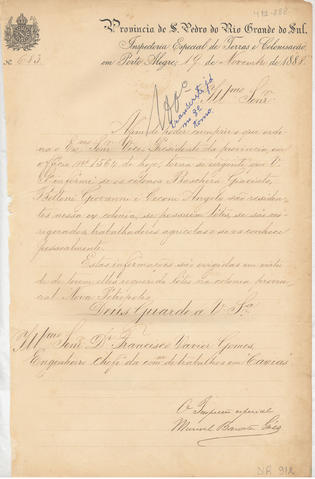 412-888
Provincia de S. Pedro do Rio Grande do Sul.
Inspectoria Especial de Terras e Colonisação,
Nº 683
em Porto Alegre, 19 de Novembro de 1888.
Illmo Snr.
transcripto já
Afim de poder cumprir o que ordena
o Exmo Snr. Vice Presidente da provincia, em
officio nº 1564 de hoje, torna-se urgente que V. Sª
informe se os colonos Baschera Giacinto,
Belloni Giovanni e Cecconi Angelo são residentes
nessa ex colonia, se possuem lotes, se são
trabalhadores agricolas e se os conhece
pessoalmente.
Estas informações são exigidas em virtude
de terem elles requerido lotes na colonia provincial
Nova Petropolis
Deus Guarde a V. Sª
Illmo Snr. Dr. Francisco Davier Gomes,
Engenheiro Chefe da comm. de trabalhos em "Caxias"
O Inspector especial
Manoel Barata Góes
912